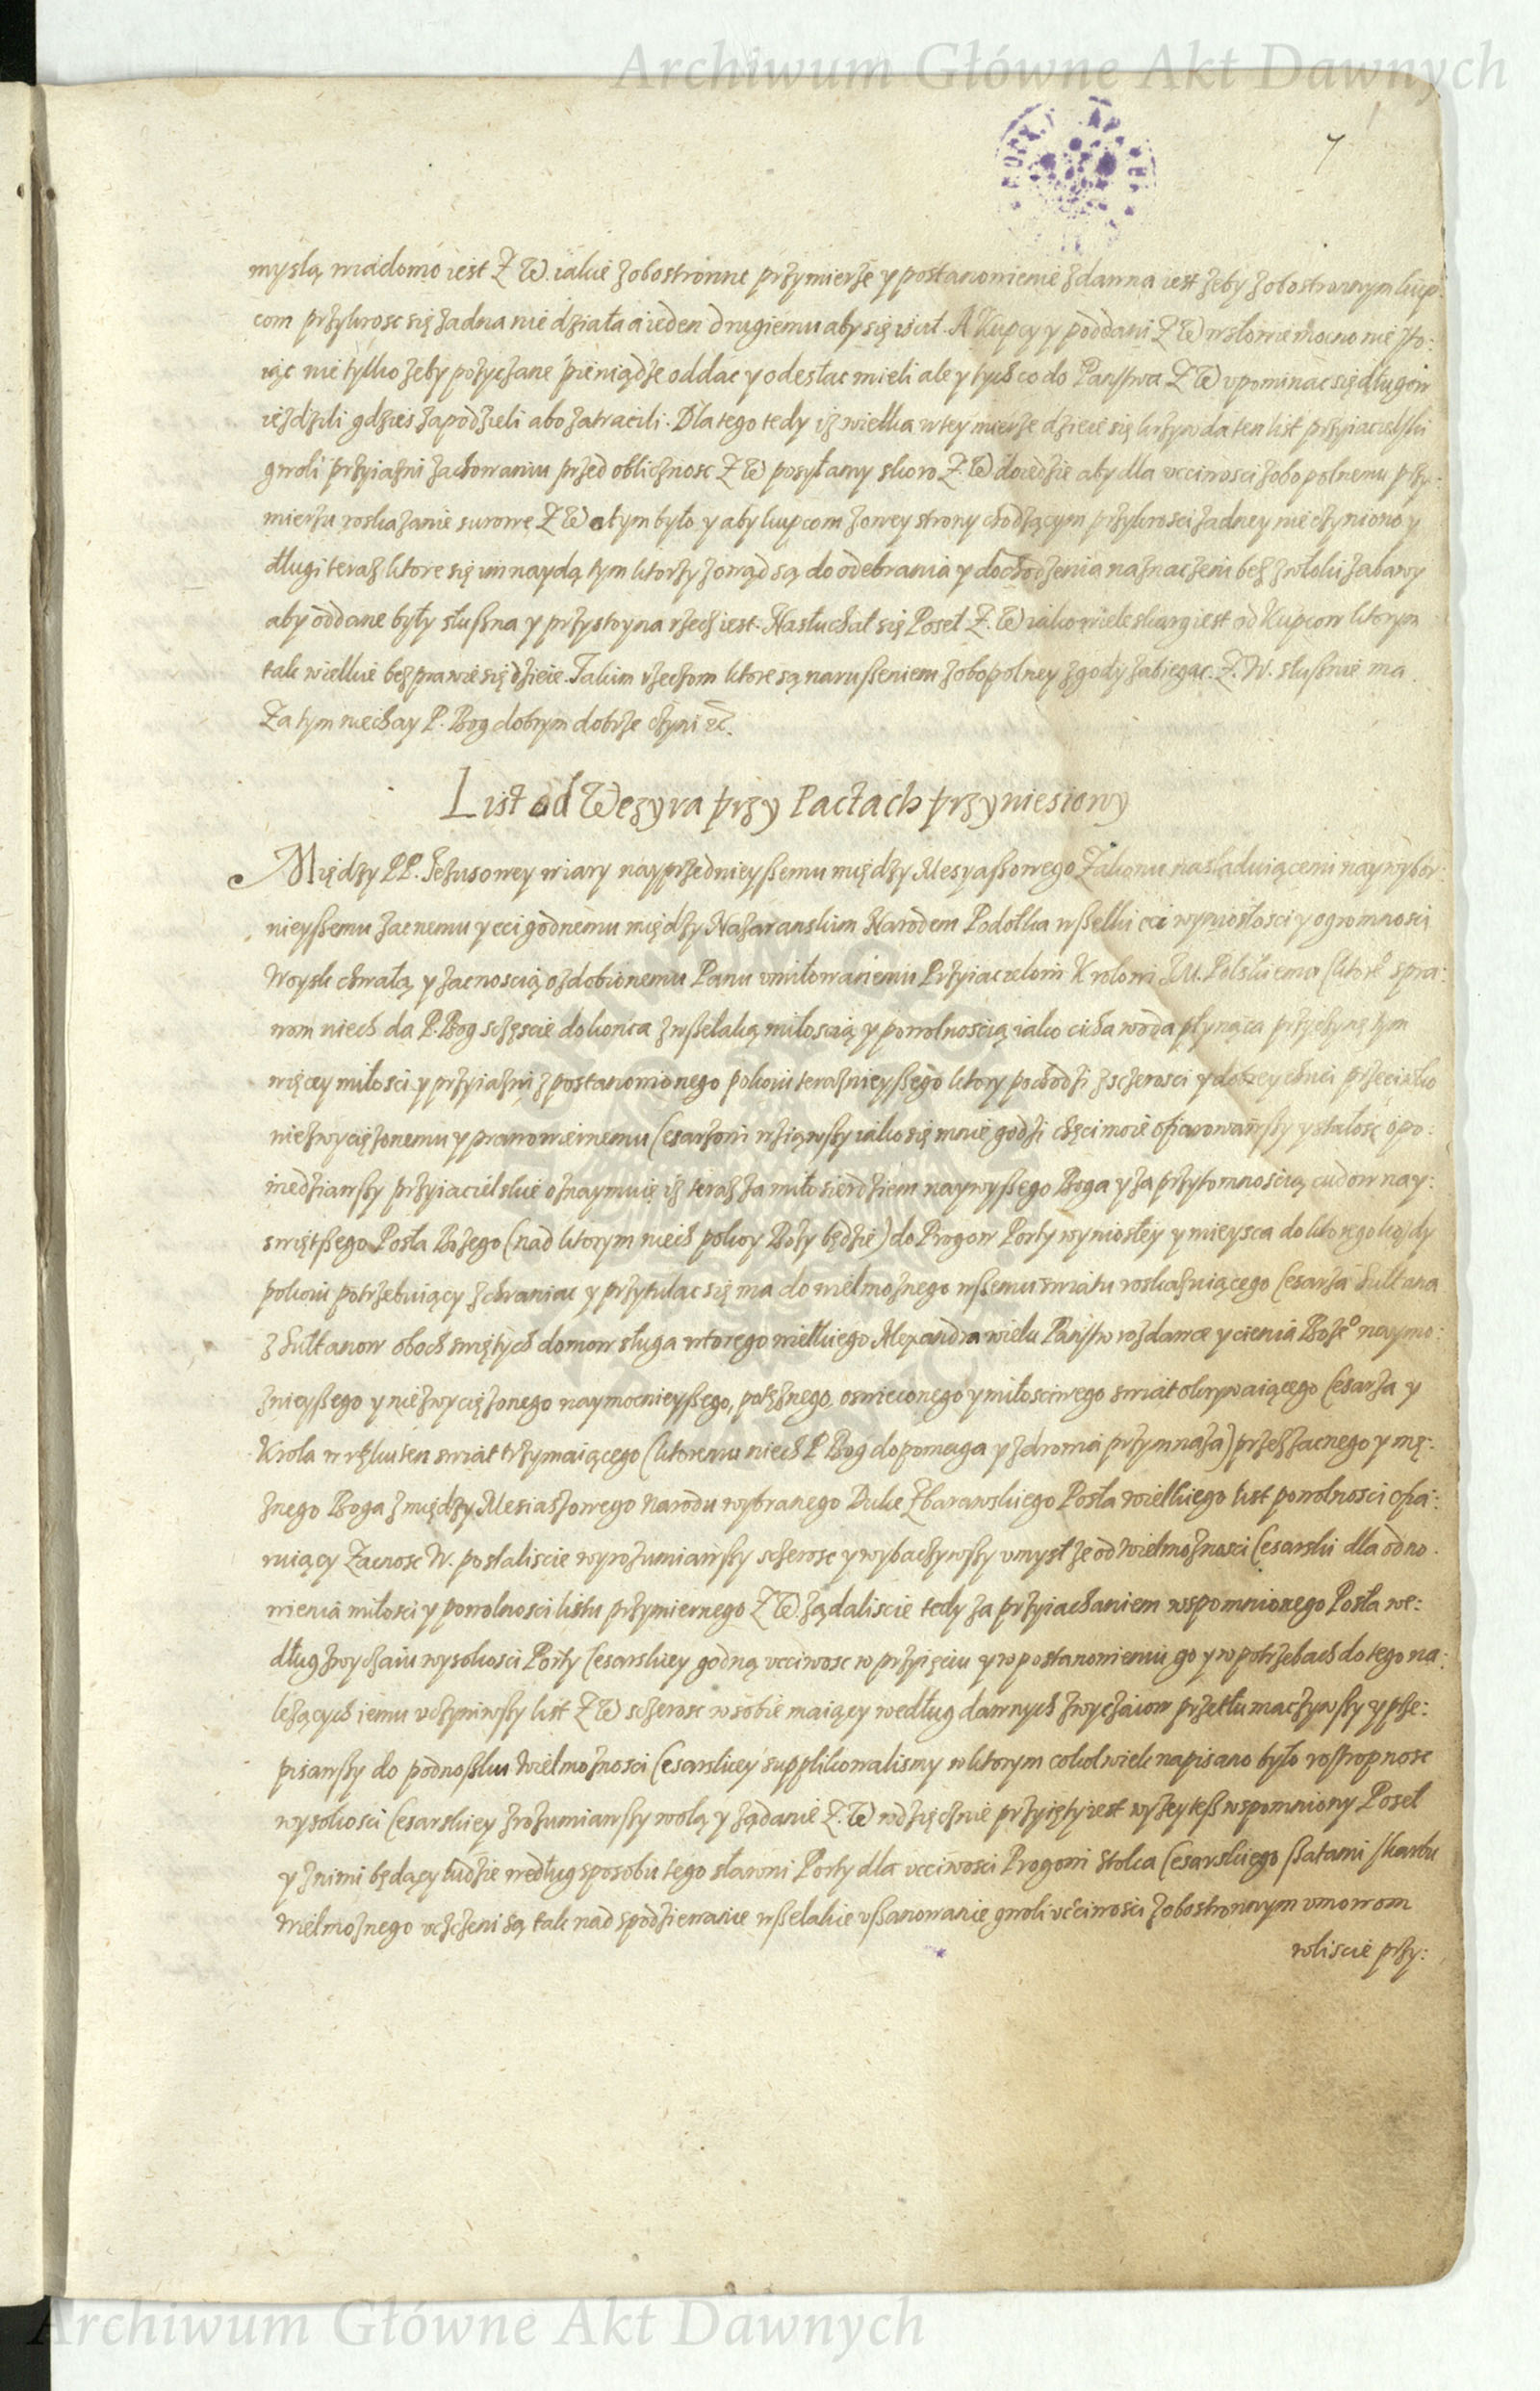 Archiwum Główne Akt Dawnych
7
myslą wiadomo iest Z W. iakie z obostronne przymierze y postanowienie zdawna iest zeby z obostronnym kup:
com przykrosc się zadna nie działa a ieden drugiemu aby się iscił. A Kupcy y poddani Z W w słowie mocno nie sto:
iąc nie tylko zeby pozyczane pieniądze oddac y odesłac mieli ale y tych co do Panstwa Z W upominac się długow
iezdzili gdzies zapodzieli abo zatracili. Dla tego tedy iz wielka w tey mierze dzieie się krzywda ten list przyiacielski
gwoli przyiazni zachowaniu przed oblicznosc Z W posyłamy skoro Z. W doiedzie aby dla ucciwosci zobopolnemu przy:
mierzu roskazanie surowe Z W o tym było y aby kupcom z owey strony chodzącym przykrosci zadney nie czyniono y
długi teraz ktore się im naydą tym ktorzy z onąd są do odebrania y dochodzenia naznaczeni bez zwłoki zabawy
aby oddane były słuszna y przystoyna rzecz iest. Nasłuchał się Poseł Z. W iako wiele skarg iest od Kupcow ktorym
tak wielkie bezprawie się dzieie. Takim rzeczom ktore są naruszeniem zobopolney zgody zabiegac Z. W. słusznie ma.
Za tym niechay P. Bog dobrym dobrze czyni etc.
List od Wezyra przy Pactach przyniesiony
Między PP. Jezusowey wiary nayprzednieyszemu między Mesyaszowego Zakonu nasladuiącemi naywybor:
nieyszemu zacnemu y cci godnemu między Nazaranskim Narodem Padołka wszelki cci wyniosłosci y ogromnosci
Woysk chwałą y zacnoscią ozdobionemu Panu umiłowanemu Przyiacielowi Krolowi JM. Polskiemu (ktoro spra:
wom niech da P. Bog sczęscie do konca z wszelaką miłoscią y powolnoscią iako cicha woda płynąca przyczynę tym
więcey miłosci y przyiazni z postanowionego pokoiu teraznieyszego ktory pochodzi z scerosci y dobrey chęci przeciwko
niezwyciężonemu y prawowiernemu Cesarzowi wziąwszy iako się mnie godzi chęci moie ofiarowawszy y stałosc opo:
wiedziawszy przyiacielskie oznaymuię iz teraz za miłosierdziem naywyzszego Boga y za przytomnoscią cudow nay:
swiętszego Posła Bozego (nad ktorym niech pokoy Bozy będzie) do Progow Porty wyniosłey y mieysca do ktorego kazdy
pokoiu potrzebuiący zchraniac y przytulac się ma do wielmoznego wszemu swiatu roskazuiącego Cesarza Sułtana
z Sułtanow oboch swiętych domow sługa wtorego wielkiego Alexandra wielu Panstw rozdawce y cienia Bozo naymo:
znieyszego y niezwyciężonego naymocnieyszego, potężnego oswieconego y miłosciwego swiat okrywaiącego Cesarza y
Krola w ręku ten swiat trzymaiącego (ktoremu niech P Bog dopomaga y zdrowia przymnaza) przez zacnego y mę:
znego Boga z między Mesiaszowego narodu wybranego Duke Zbarawskiego Posła wielkiego list powolnosci ofia:
ruiący Zacnosc W. posłaliscie wyrozumiawszy scerosc y wybaczywszy umysł ze od wielmoznosci Cesarski dla odno:
wienia miłosci y powolnosci listu przymiernego Z W. ządaliscie tedy za przyiachaniem wspomnionego Posła we:
dług zwyczaiu wysokosci Porty Cesarskiey godną ucciwosc w przyięciu y w postanowieniu go y w potrzebach do tego na:
lezących iemu uczyniwszy list Z W scerosc w sobie maiący według dawnych zwyczaiow przetłumaczywszy y prze:
pisawszy do podnoszku wielmoznosci Cesarskiey supplikowalismy w ktorym cokolwiek napisano było rostropnosc
wysokosci Cesarskiey zrozumiawszy wolą y ządanie Z. W wdzięcznie przyięty iest wyzey tesz wspomniony Poseł
y z nimi będący ludzie według sposobu tego sławni Porty dla ucciwosci Progow Stolca Cesarskiego szatami skarbu
wielmoznego uczczeni są tak nad spodziewanie wszelakie uszanowanie gwoli uccciwosci zobostronnym umowom
w liscie przy:
Archiwum Główne Akt Dawnych